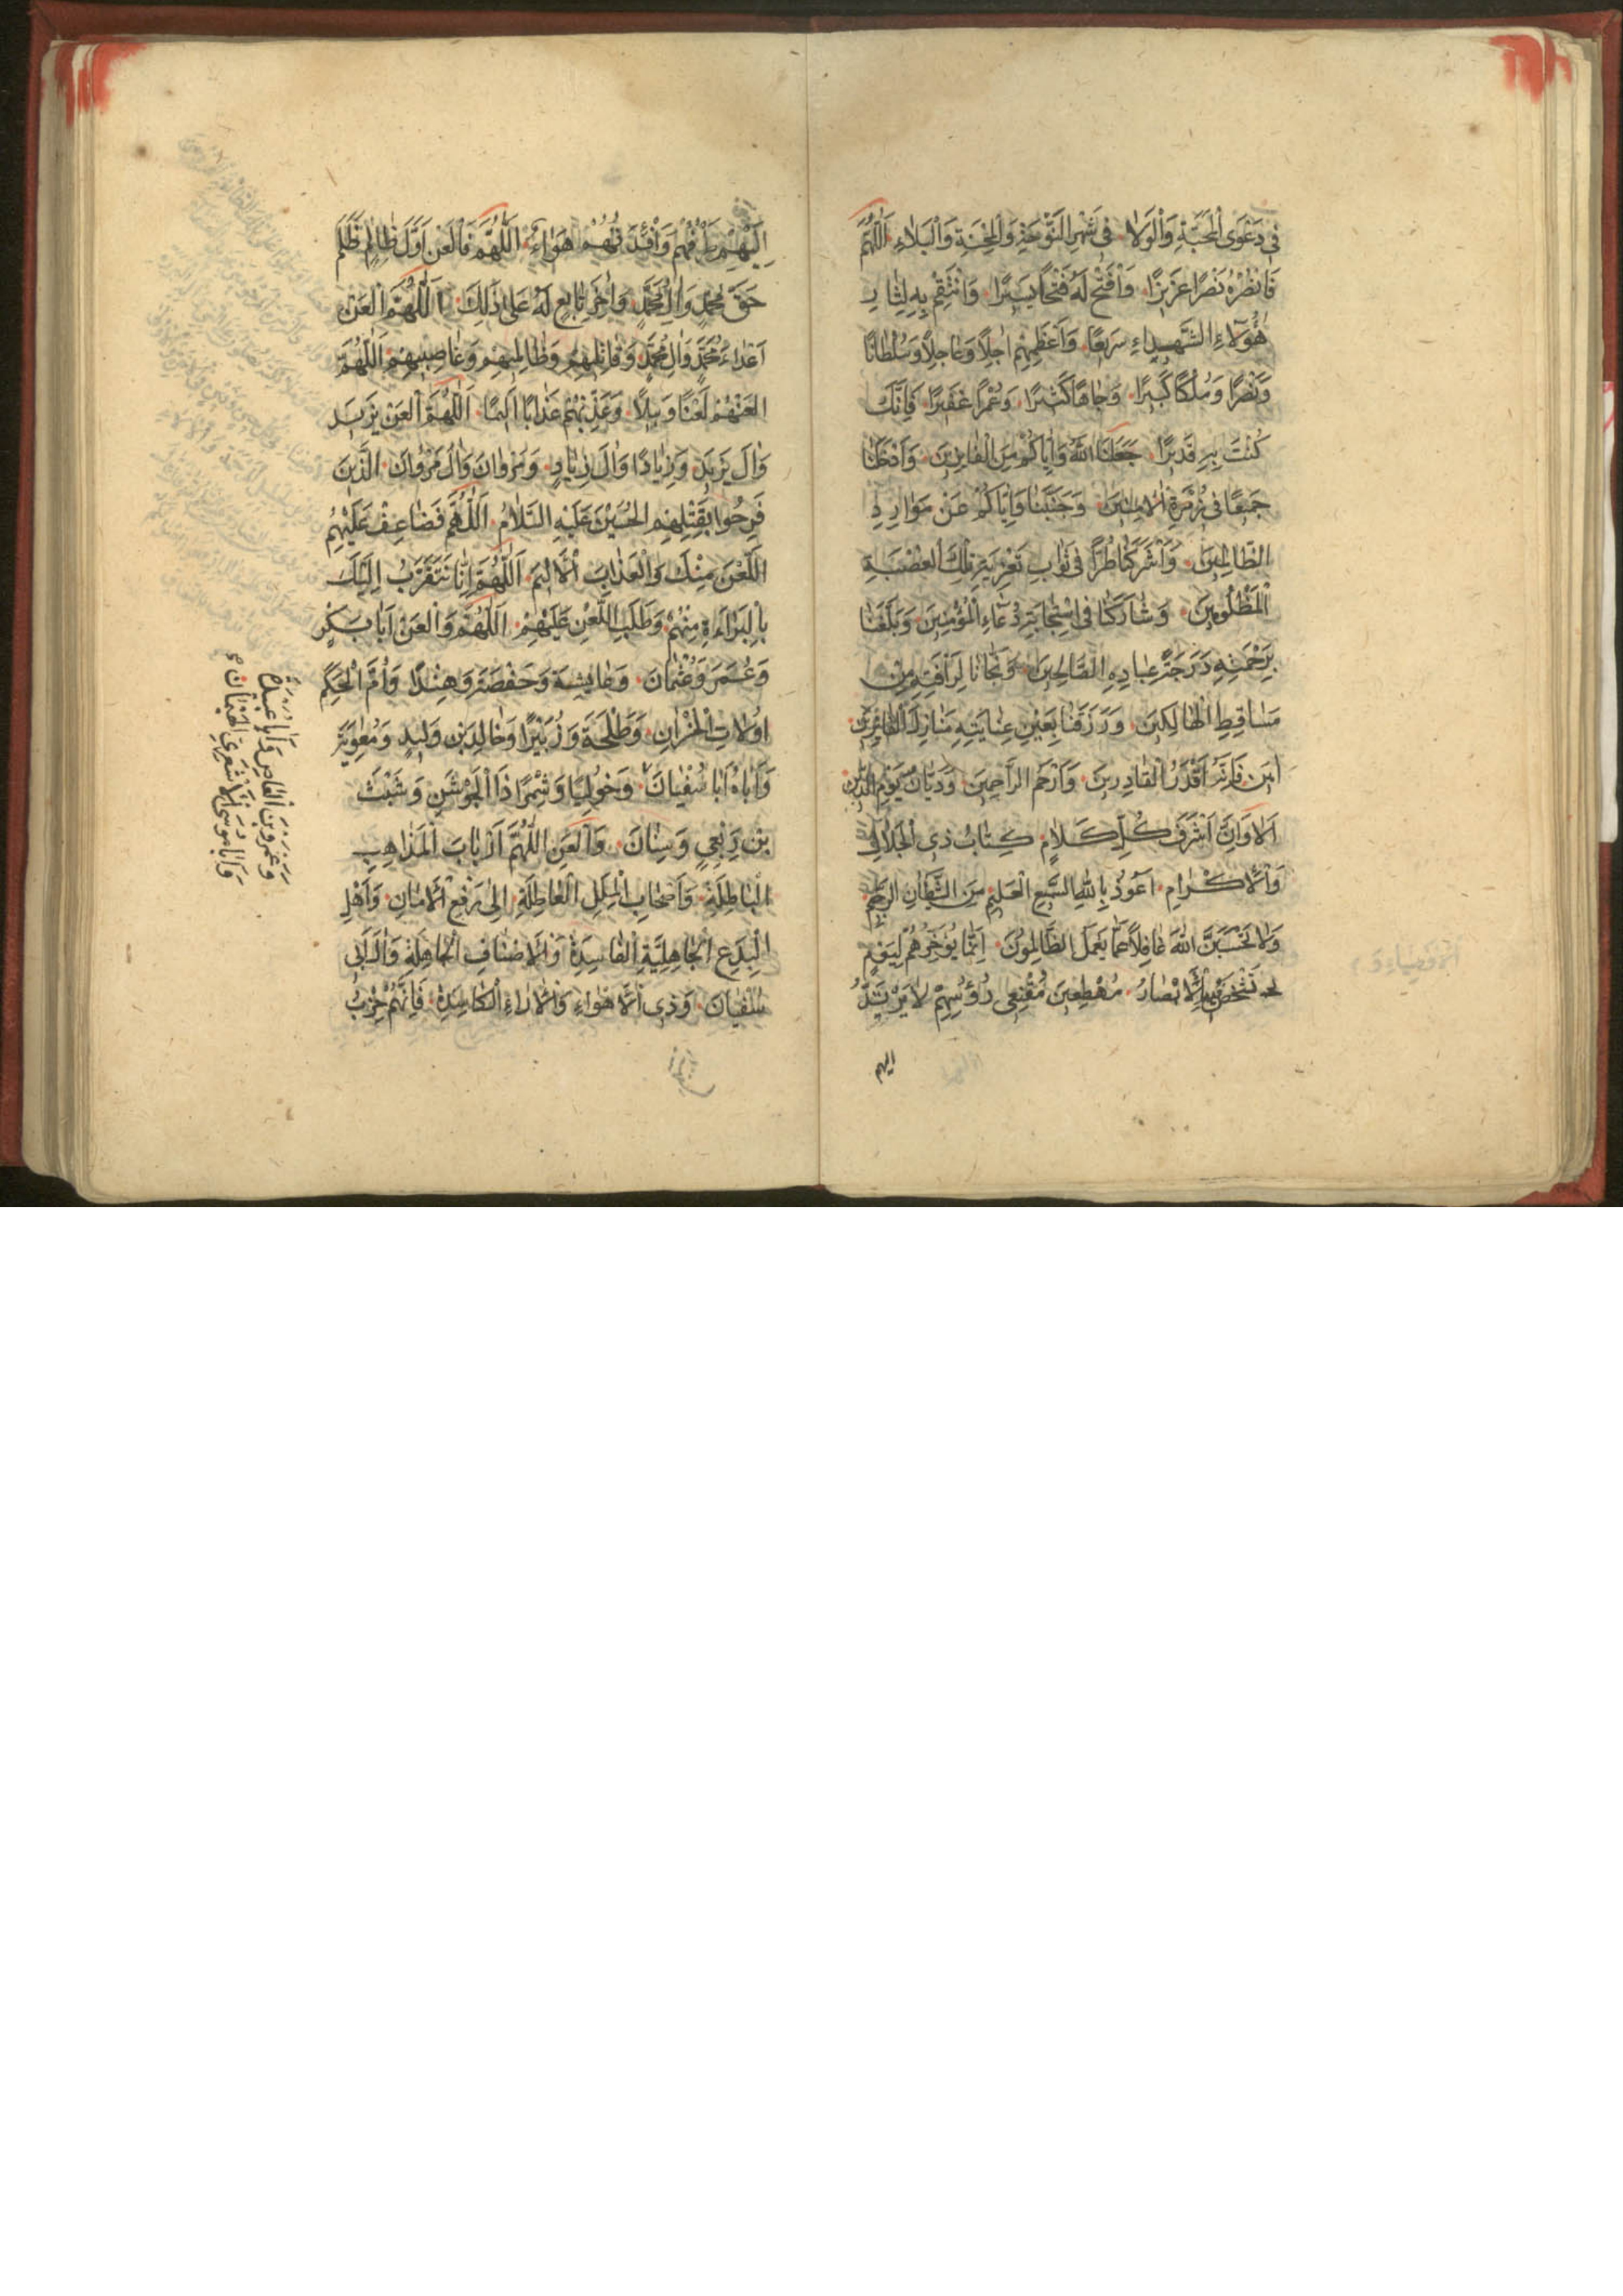 في دَعْوَى الْمَحَبَّةِ وَالْوَلَا فِي شَهْرِ التَّوْجِعَةِ وَالْمِحْنَةِ وَالْبَلَاءِ اَللّٰهُمَّ
فَانْصُرْهُ نَصْرًا عَزِيزًا وَافْتَحْ لَهُ فَتْحًا يَسِيرًا وَانْتَقِمْ بِهِ لِثَارِ
هٰؤُلَاءِ الشُّهَدَاءِ سَرِيعًا وَاَعْطِهِمْ اٰجِلًا وَعَاجِلًا وَسُلْطَانًا
وَنَصْرًا وَمُلْكًا كَبِيرًا وَجَاهًا كَثِيرًا وَعُمْرًا غَفِيرًا فَاِنَّكَ
كُنْتَ بِهِ قَدِيرًا جَعَلَنَا اللهُ وَاِيَّاكُمْ مِنَ الْفَائِزِينَ وَاَدْخَلَنَا
جَمِيعًا فِي زُمْرَةِ الْاٰمِنِينَ وَجَنَّبَنَا وَاِيَّاكُمْ عَنْ مَوَارِدِ
الظَّالِمِينَ وَاَشْرَكَنَا طُرًّا فِي ثَوَابِ تَعْزِيَةِ تِلْكَ الْعُصْبَةِ
الْمَظْلُومِينَ وَشَارَكَنَا فِي اسْتِجَابَةِ دُعَاءِ الْمُؤْمِنِينَ وَبَلَّغَنَا
بِرَحْمَتِهِ دَرَجَةَ عِبَادِهِ الصَّالِحِينَ وَنَجَّانَا لِرَاْفَتِهِ مِنْ
مَسَاقِطِ الْهَالِكِينَ وَرَزَقَنَا بِعَيْنِ عِنَايَتِهِ مَنَازِلَ الْفَائِزِينَ
اٰمِينَ فَاِنَّهُ اَقْدَرُ الْقَادِرِينَ وَاَرْحَمُ الرَّاحِمِينَ وَدَيَّانُ يَوْمِ الدِّينِ
اَلَا وَاِنَّ اَشْرَفَ كُلِّ كَلَامٍ كِتَابُ ذِي الْجَلَالِ
وَالْاِكْرَامِ اَعُوذُ بِاللهِ السَّمِيعِ الْعَلِيمِ مِنَ الشَّيْطَانِ الرَّجِيمِ
وَلَا تَحْسَبَنَّ اللهَ غَافِلًا عَمَّا يَعْمَلُ الظَّالِمُونَ اِنَّمَا يُؤَخِّرُهُمْ لِيَوْمٍ
تَشْخَصُ فِيهِ الْاَبْصَارُ مُهْطِعِينَ مُقْنِعِي رُؤُسِهِمْ لَا يَرْتَدُّ
اليهم
اِلَيْهِمْ طَرْفُهُمْ وَاَفْئِدَتُهُمْ هَوَاءٌ اَللّٰهُمَّ فَالْعَنْ اَوَّلَ ظَالِمٍ ظَلَمَ
حَقَّ مُحَمَّدٍ وَاٰلِ مُحَمَّدٍ وَاٰخِرَ تَابِعٍ لَهُ عَلَى ذٰلِكَ اَللّٰهُمَّ الْعَنْ
اَعْدَاءَ مُحَمَّدٍ وَاٰلِ مُحَمَّدٍ وَقَاتِلِيهِمْ وَظَالِمِيهِمْ وَغَاصِبِيهِمْ اَللّٰهُمَّ
الْعَنْهُمْ لَعْنًا وَبِيلًا وَعَذِّبْهُمْ عَذَابًا اَلِيمًا اَللّٰهُمَّ الْعَنْ يَزِيدَ
وَاٰلَ يَزِيدَ وَزِيَادًا وَاٰلَ زِيَادٍ وَمَرْوَانَ وَاٰلَ مَرْوَانَ الَّذِينَ
فَرِحُوا بِقَتْلِهِمِ الْحُسَيْنَ عَلَيْهِ السَّلَامُ اَللّٰهُمَّ فَضَاعِفْ عَلَيْهِمِ
اللَّعْنَ مِنْكَ وَالْعَذَابَ الْاَلِيمَ اَللّٰهُمَّ اِنَّا نَتَقَرَّبُ اِلَيْكَ
بِالْبَرَاءَةِ مِنْهُمْ وَطَلَبِ اللَّعْنِ عَلَيْهِمْ اَللّٰهُمَّ وَالْعَنْ اَبَا بَكْرٍ
وَعُمَرَ وَعُثْمَانَ وَعَايِشَةَ وَحَفْصَةَ وَهِنْدًا وَاُمَّ الْحَكَمِ
وَطَلْحَةَ وَزُبَيْرًا وَخَالِدَ بْنِ وَلِيدٍ وَمُعٰوِيَةَ
وَاَبَاهُ اَبَا سُفْيَانَ وَخُولِيًا وَشِمْرًا ذَا الْجَوْشَنِ وَشَبَثَ
بْنِ رِبْعِيٍ وَسِنَانَ وَالْعَنِ اللّٰهُمَّ اَرْبَابَ الْمَذَاهِبِ
الْبَاطِلَةِ وَاَصْحَابَ الْمِلَلِ الْعَاطِلَةِ اِلَى رَفْعِ الْاَمَانِ وَاَهْلِ
الْبِدَعِ الْجَاهِلِيَّةِ الْفَاسِدَةِ وَالْاَصْنَافِ الْجَاهِلَةِ وَاٰلَ اَبِي
سُفْيَانَ وَذِي الْاَهْوَاءِ وَالْاٰرَاءِ الْكَاسِدَةِ فَاِنَّهُمْ حِزْبُ
وَعَمْرَو بْنَ الْعَاصِ وَاَبَا عُبَيْدَةَ
وَاَبَا مُوسَى الْاَشْعَرِي